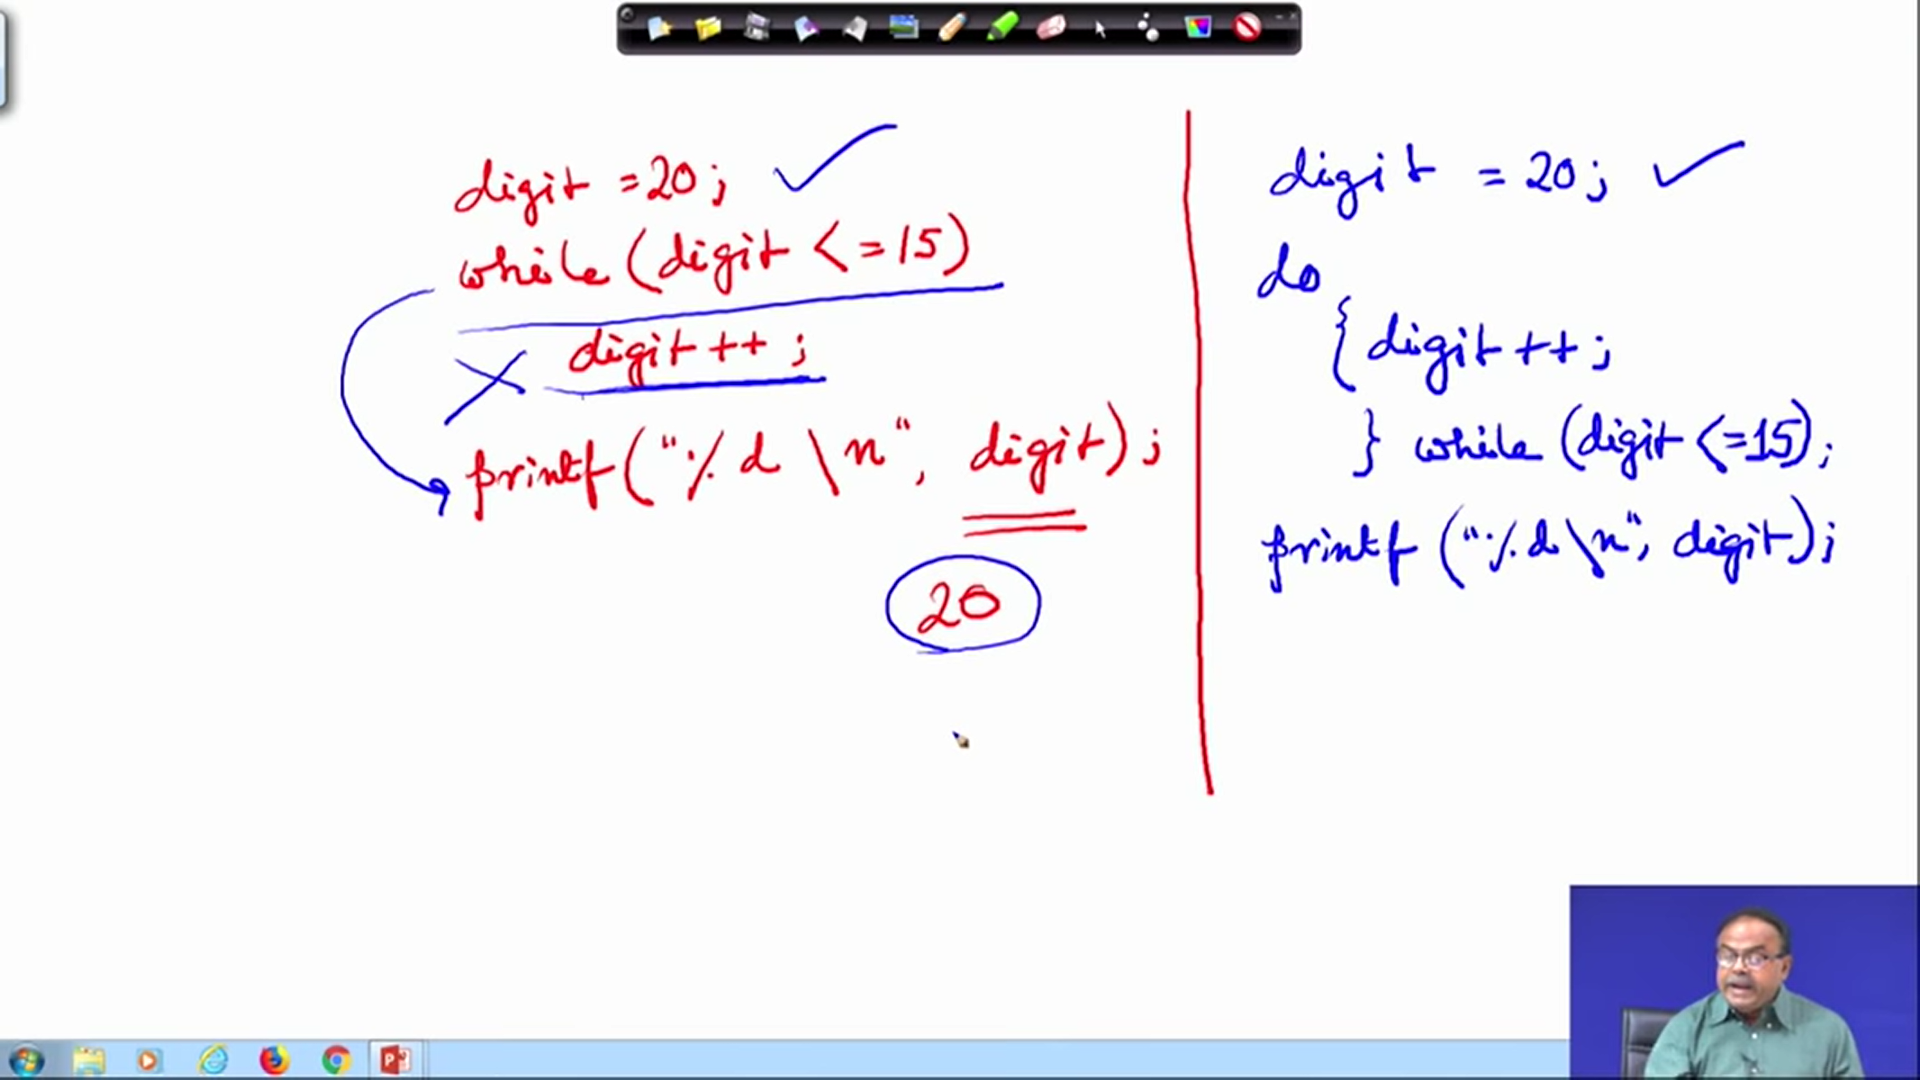 digit =20;
while (digit <=15)
digit ++ ;
printf("%d \n", digit);
20
digit = 20;
do
{ digit ++ ;
} while (digit <=15);
printf ("%d\n", digit);